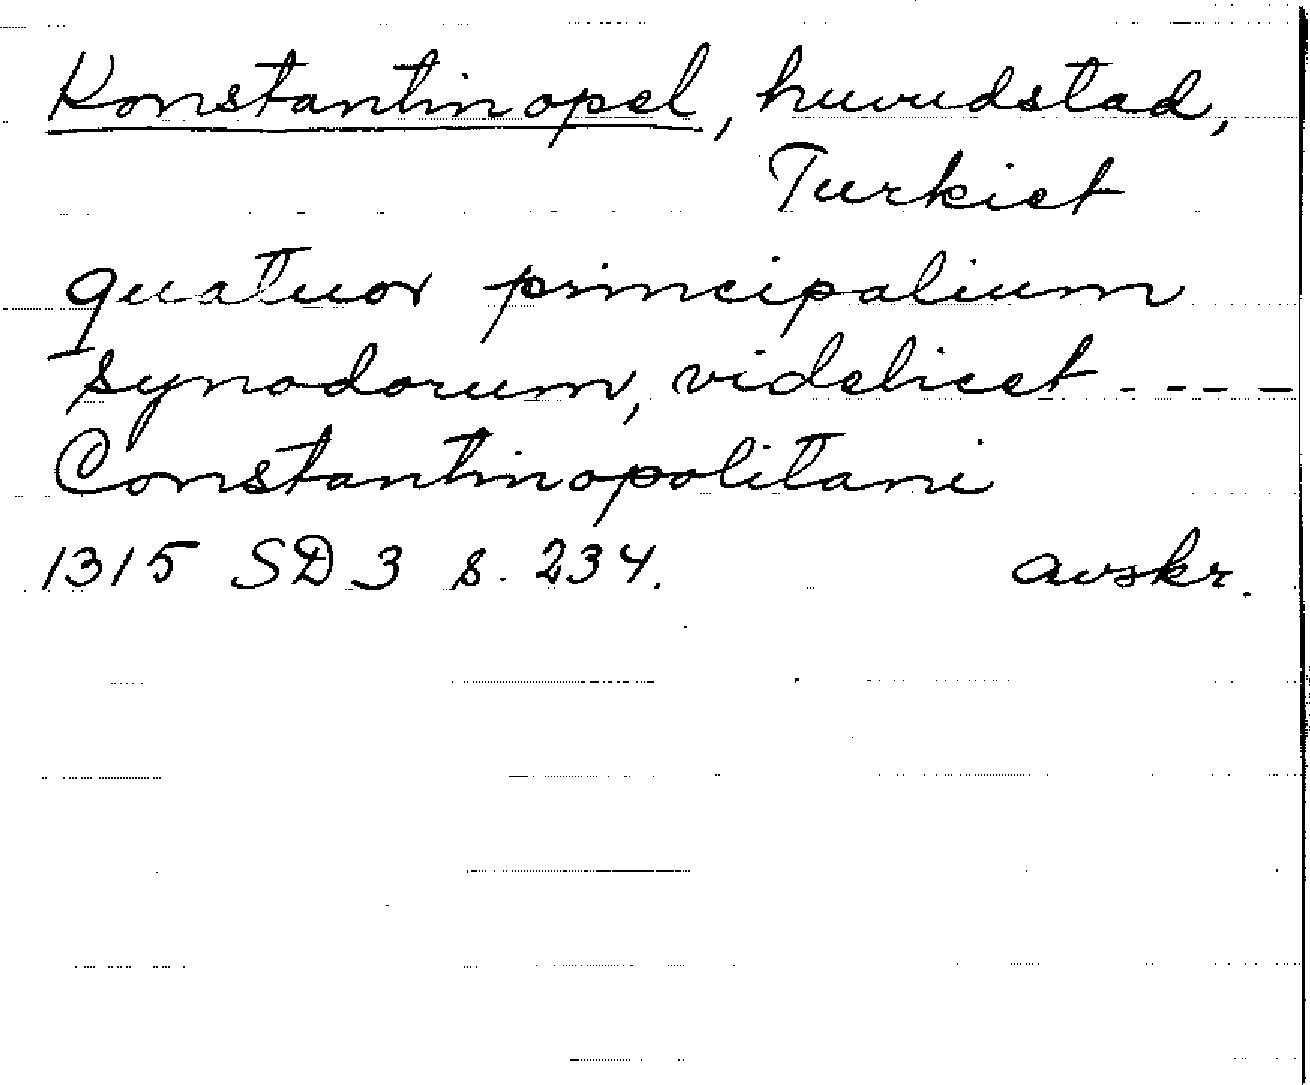 Konstantinopel, huvudstad,
Turkiet
quatuor principalium
synodorum, videlicet ----
Constantinopolitani
1315 SD 3 s. 234. avskr.